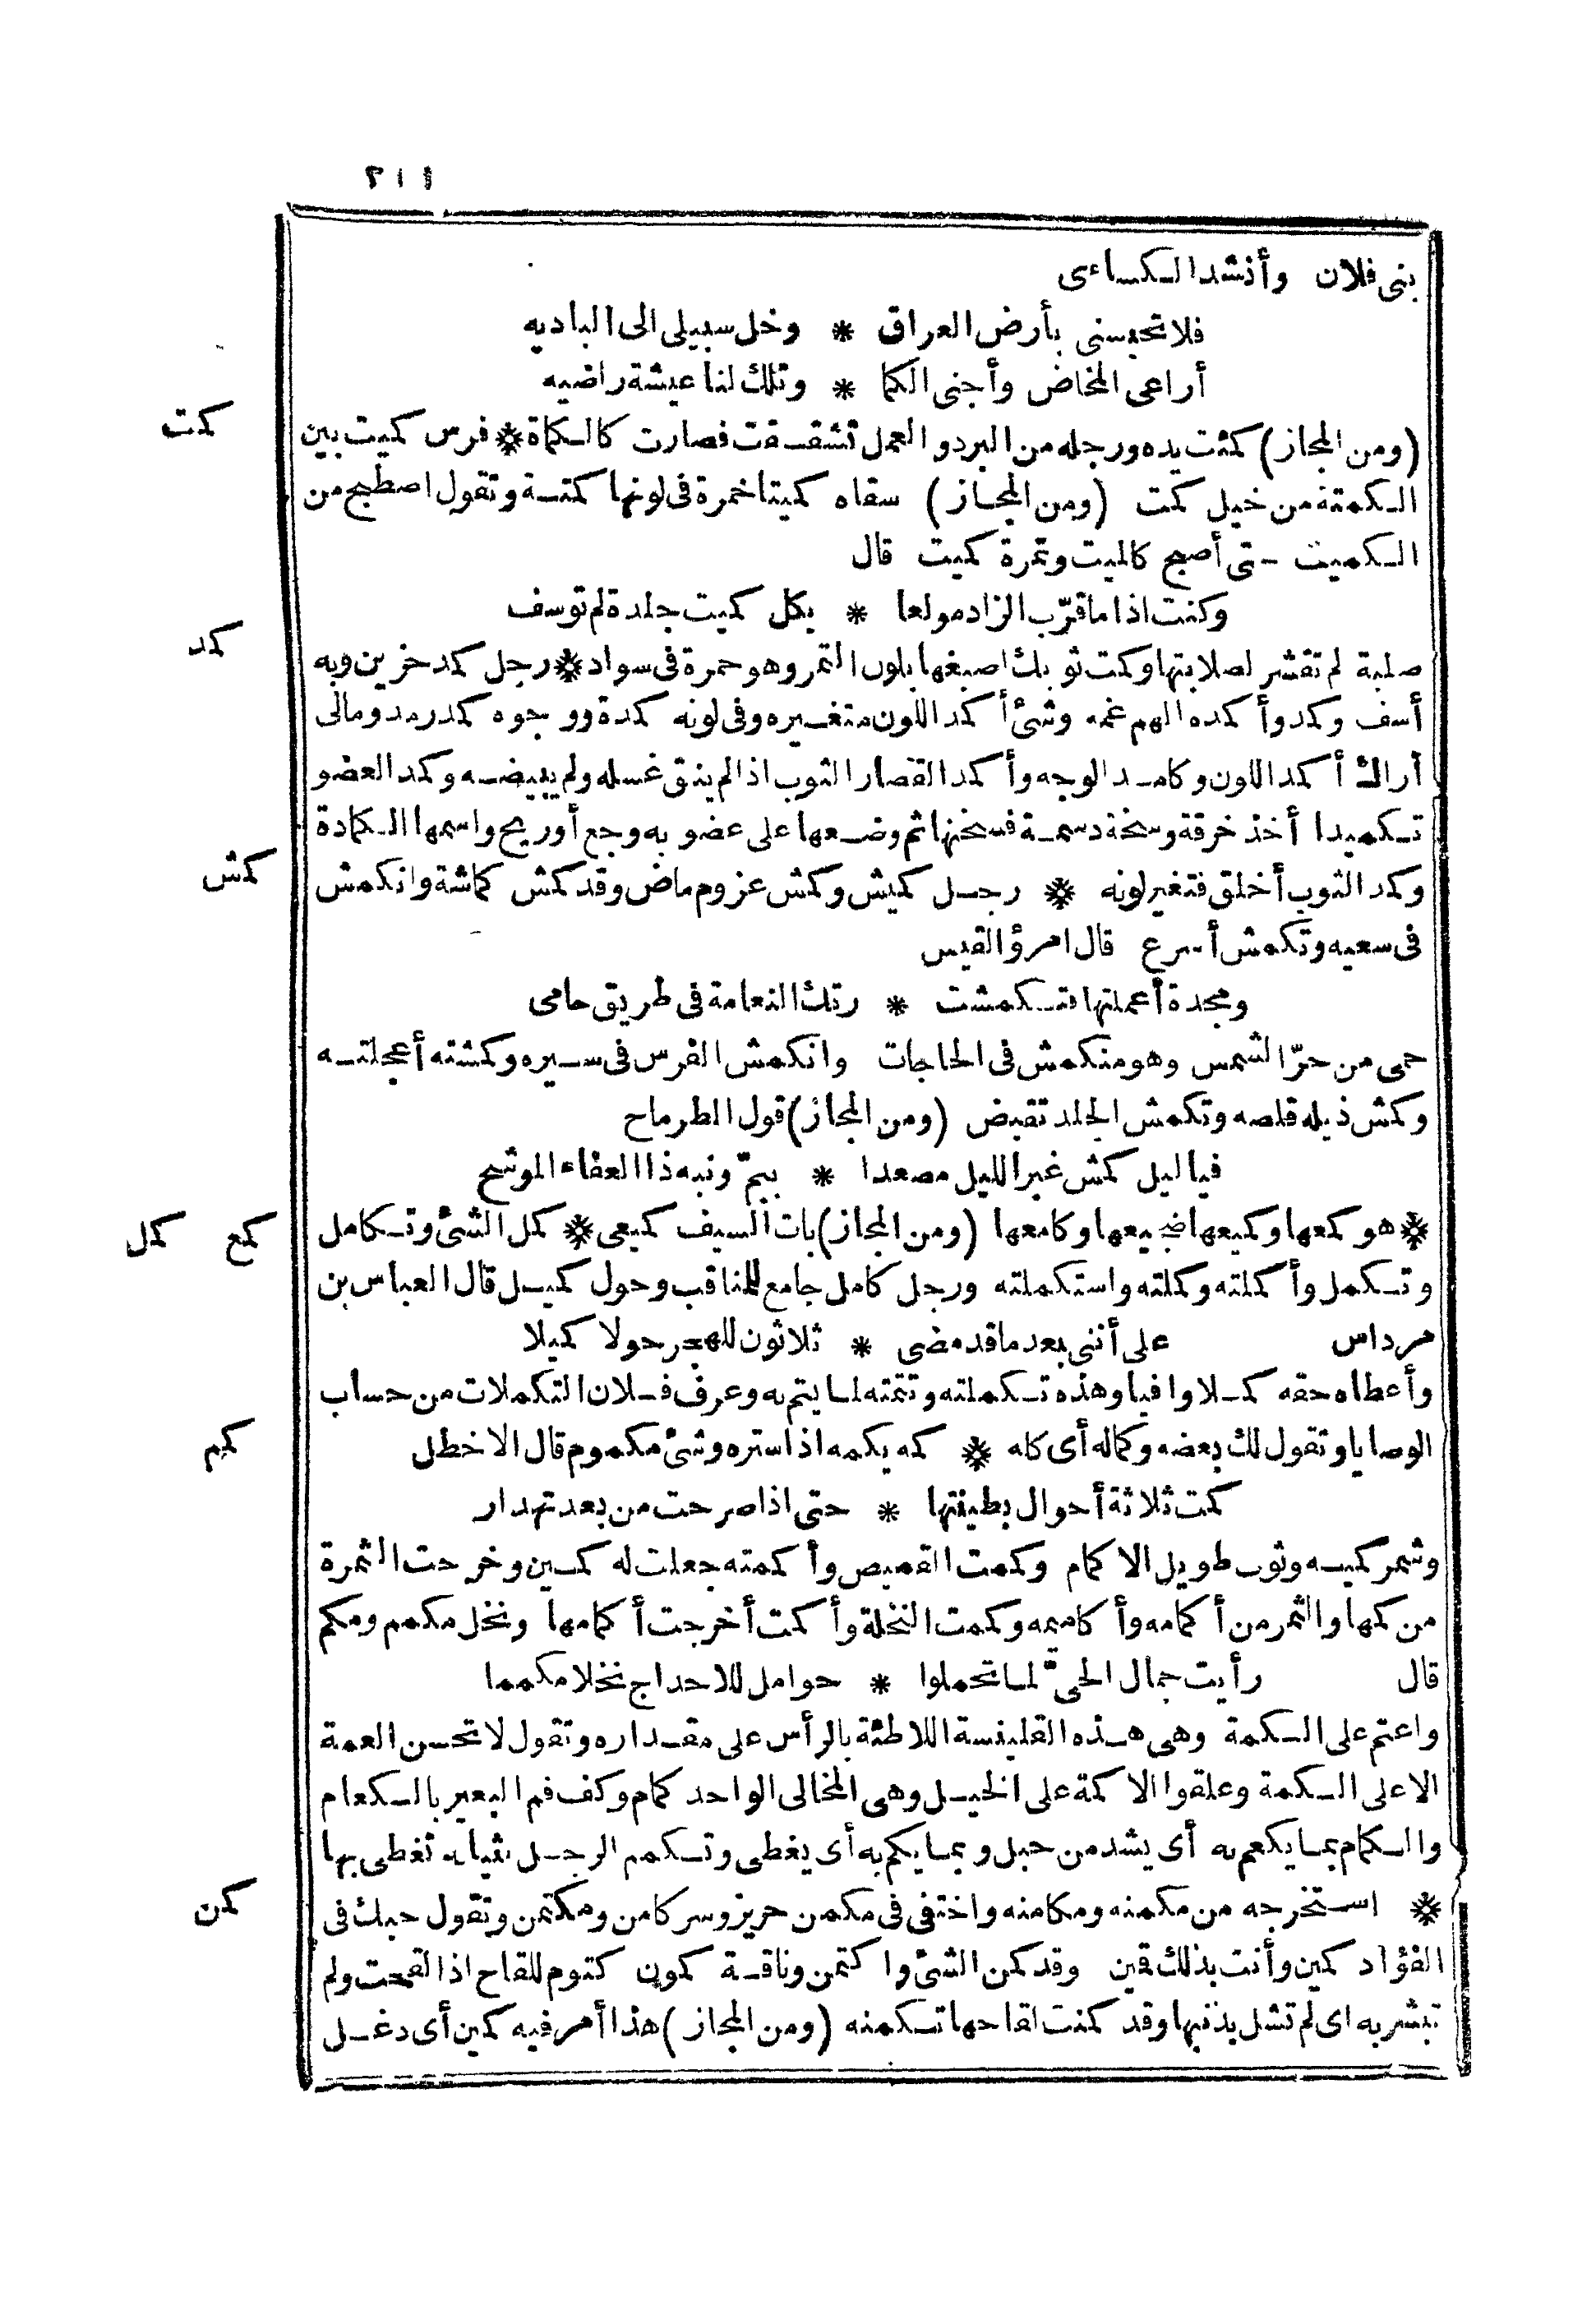 ٢١١
بنى فلان وأنشد الكساءى
فلا تحبسنى بأرض العراق * وخل سبيلى الى الباديه
أراعى المخاض وأجنى الكما * وتلك لنا عيشة راضيه
(ومن المجاز) كمئت يده ورجله من البرد والعمل تشققت فصارت كالكمأة * فرس كميت بين
كمت
الكمتة من خيل كمت (ومن المجاز) سقاه كميتا خمرة فى لونها كمتة وتقول اصطبح من
الكميت حتى أصبح كالميت وتمرة كميت قال
وكنت اذا ما قرّب الزاد مولعا * بكل كميت جلدة لم توسف
صلبة لم تقشر لصلابتها وكمت ثوبك اصبغها بلون التمر وهو حمرة فى سواد * رجل كمد حزين وبه
كمد
أسف وكمد وأكمده الهم غمه وشئ أكمد اللون متغيره وفى لونه كمدة ووجوه كمد رمد ومالى
أراك أكمد اللون وكامد الوجه وأكمد القصار الثوب اذا لم ينق غسله ولم يبيضه وكمد العضو
تكميدا أخذ خرقة وسخة دسمة فسخنها ثم وضعها على عضو به وجع أو ريح واسمها الكمادة
وكمد الثوب أخلق فتغير لونه * رجل كميش وكمش عزوم ماض وقد كمش كماشة وانكمش
كمش
فى سعيه وتكمش أسرع قال امرؤ القيس
ومجدة أعملتها فتكمشت * رتك النعامة فى طريق حامى
حمى من حرّ الشمس وهو منكمش فى الحاجات وانكمش الفرس فى سيره وكمشته أعجلته
وكمش ذيله قلصه وتكمش الجلد تقبض (ومن المجاز) قول الطرماح
فيا ليل كمش غبر الليل مصعدا * ببمّ ونبه ذا العفاء الموشح
* هو كمعها وكميعها ضجيعها وكامعها (ومن المجاز) بات السيف كميعى * كمل الشئ وتكامل
كمع كمل
وتكمل وأكملته وكملته واستكملته ورجل كامل جامع للمناقب وحول كميل قال العباس بن
مرداس على أننى بعد ما قد مضى * ثلاثون للهجر حولا كميلا
وأعطاه حقه كملا وافيا وهذه تكملته وتتمته لما يتم به وعرف فلان التكملات من حساب
الوصايا وتقول لك بعضه وكماله أى كله * كمه يكمه اذا ستره وشئ مكموم قال الاخطل
كم
كمت ثلاثة أحوال بطينتها * حتى اذا صرحت من بعد تهدار
وشمر كميه وثوب طويل الاكمام وكممت القميص وأكمته جعلت له كمين وخرجت الثمرة
من كمها والثمر من أكمامه وأكاميمه وكممت النخلة وأكمت أخرجت أكمامها ونخل مكمم ومكم
قال رأيت جمال الحىّ لما تحملوا * حوامل للاحداج نخلا مكمما
واعتم على الكمة وهى هذه القلينسة اللاطئة بالرأس على مقداره وتقول لا تحسن العمة
الا على الكمة وعلقوا الاكمة على الخيل وهى المخالى الواحد كمام وكف فم البعير بالكعام
والكمام بما يكعم به أى يشد من حبل وبما يكم به أى يغطى وتكمم الرجل بثيابه تغطى بها
* استخرجه من مكمنه ومكامنه واختفى فى مكمن حريز وسر كامن ومكتمن وتقول حبك فى
كمن
الفؤاد كمين وأنت بذلك قمين وقد كمن الشئ واكتمن وناقة كمون كتوم للقاح اذا لقحت ولم
تبشر به اى لم تشل بذنبها وقد كمنت لقاحها تكمنه (ومن المجاز) هذا أمر فيه كمين أى دغل